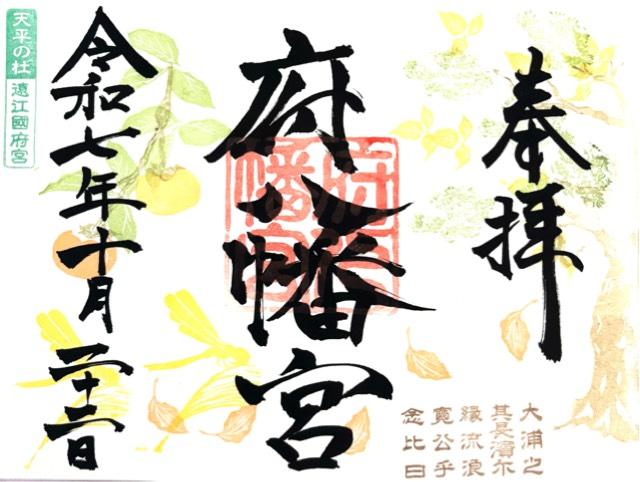 奉拝
府八幡宮
府八
幡宮
令和七年十月二十二日
天平の杜
遠江國府宮
大浦之
其長濱尓
縁流浪
寛公乎
念比日